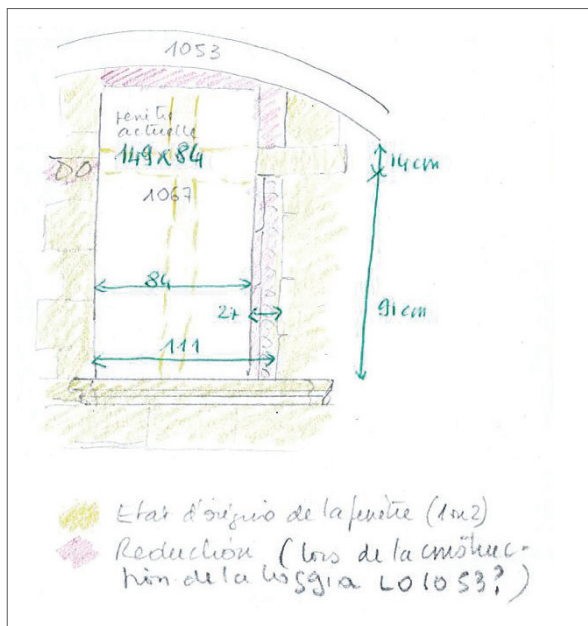 1053
fenêtre
actuelle
149x84
1067
14cm
84
27
91cm
111
Etat d'origine de la fenêtre (1 ou 2)
Reduction (lors de la construc-
tion de la loggia LO1053?)